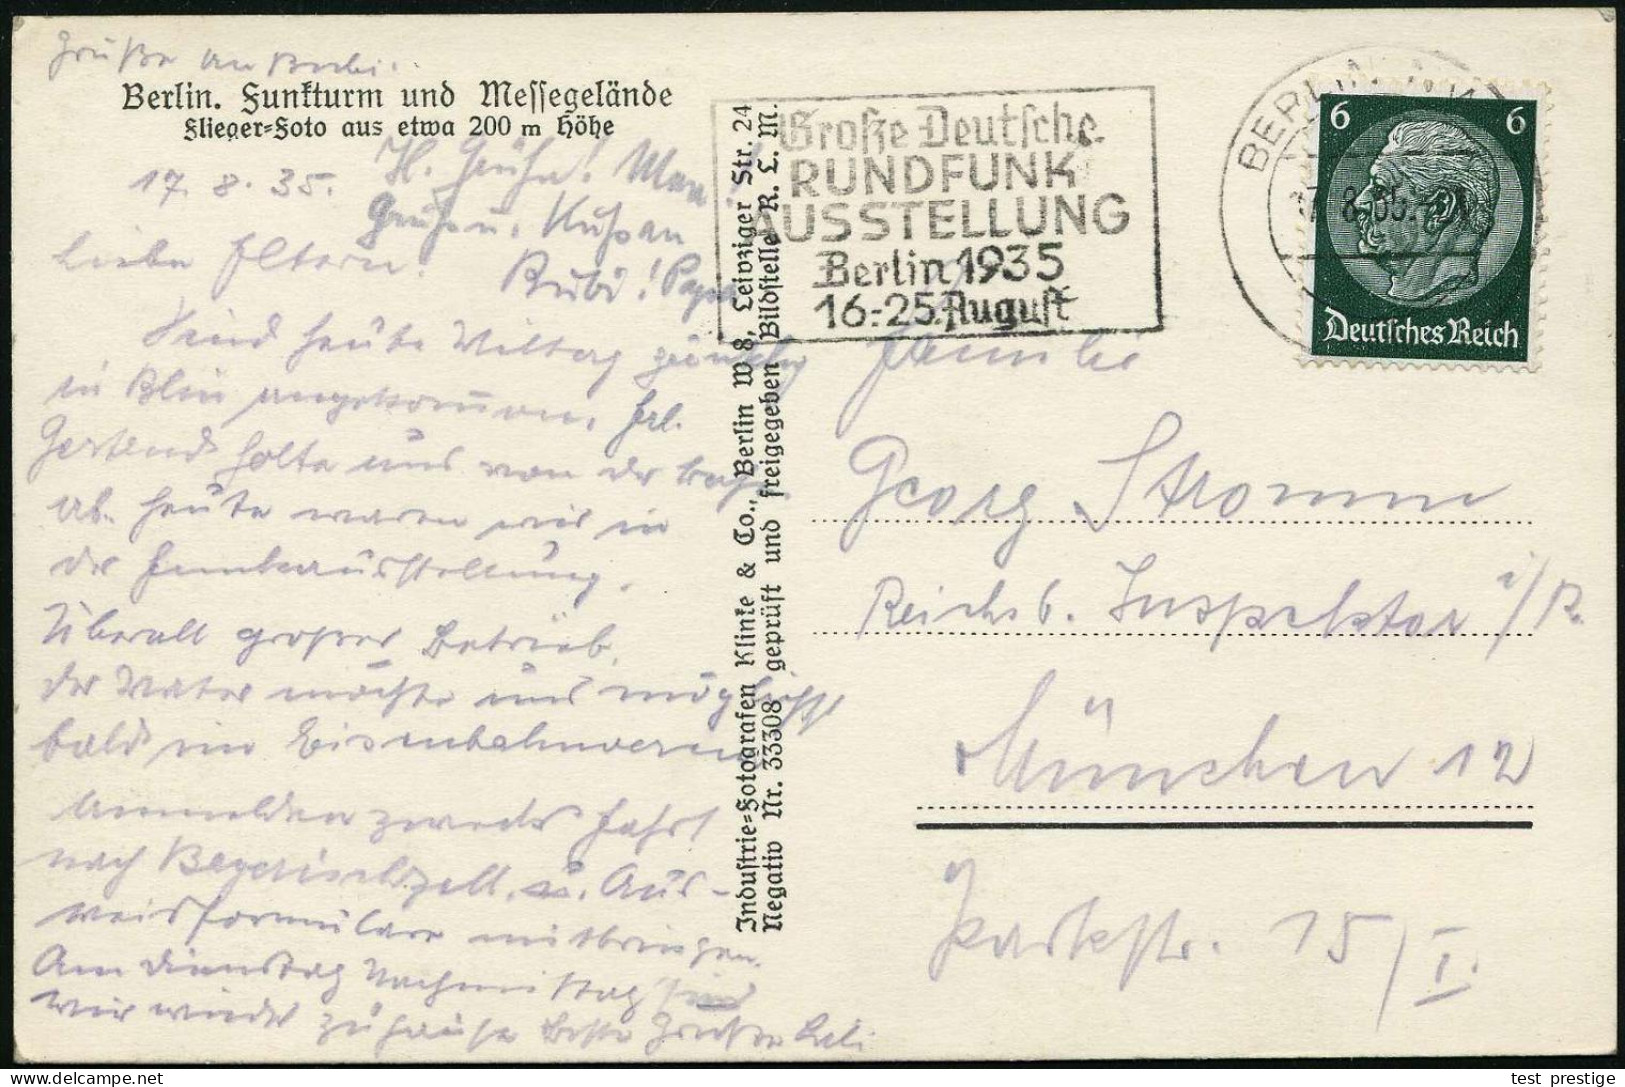 Grüße an Bubi.
Berlin. Funkturm und Messegelände
Flieger-Foto aus etwa 200 m Höhe
17. 8. 35.
H. Grüße! Mama!
Gruß u. Kuß an
Bubi! Papa
Liebe Eltern!
Sind heute Mittag
in Blin angekommen. Frl.
holte uns von der Bahn
ab. Heute waren wir in
der Funkausstellung.
Überall großer Betrieb.
der Vater möchte uns möglichst
bald im Eisenbahnverein
anmelden zwecks Fahrt
nach Bayerischzell u. Aus-
weisformulare mitbringen.
Am Dienstag Nachmittag sind
wir wieder zuhause Beste Grüße
Industrie-Fotografen Klinke & Co., Berlin W 8, Leipziger Str. 24
Negativ Nr. 33308 geprüft und freigegeben Bildstelle R. L. M.
Große Deutsche
RUNDFUNK
AUSSTELLUNG
Berlin 1935
16.-25. August
BERLIN
17.8.35.
6 6
Deutsches Reich
Familie
Georg Stromm
Reichsb. Inspektor i/R.
München 12
Parkstr. 15/I.
test_prestige